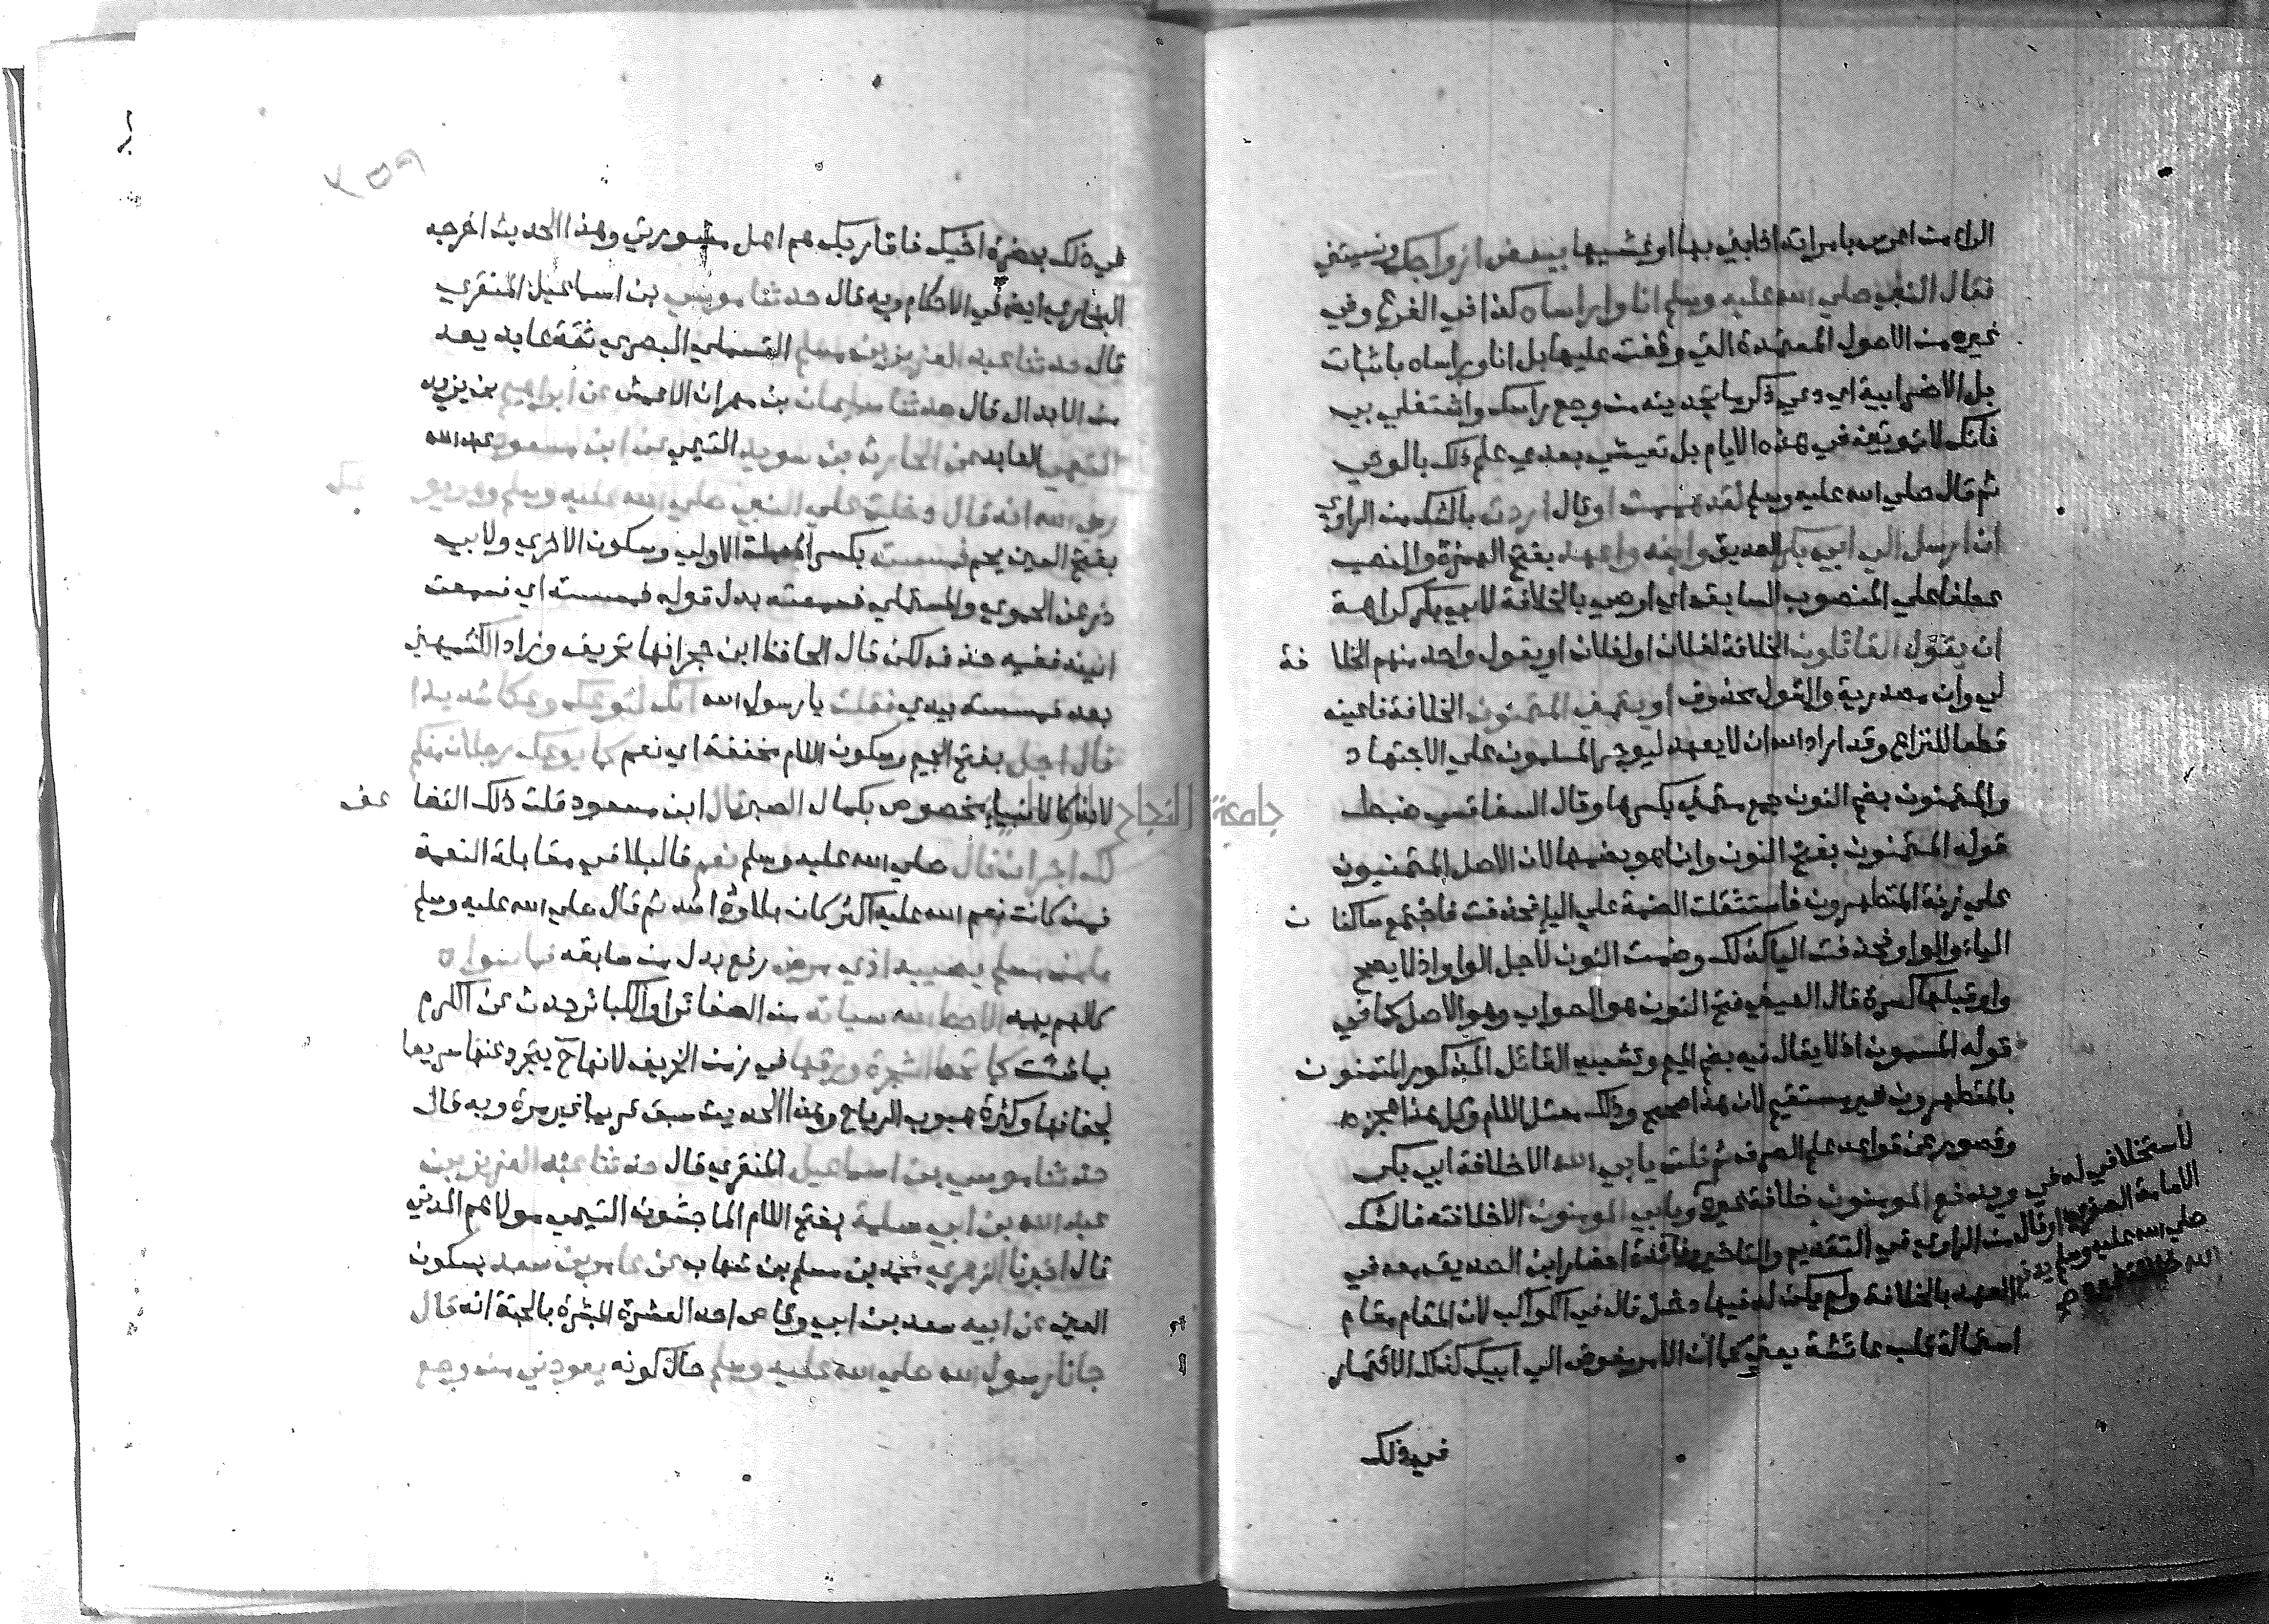 الراء من اعرس بامراته اذا بني بها او غشيها ببعض ازواجك ونسيتني
فقال النبي صلي الله عليه وسلم انا واراساه كذا في الفرع وفي
غيره من الاصول المعتمدة التي وقفت عليها بل انا وراساه باثبات
بل الاضرابية اي دعي ذكر ما تجدينه من وجع راسك واشتغلي بي
فانك لا تموتين في هذه الايام بل تعيشي بعدي علم ذلك بالوحي
ثم قال صلي الله عليه وسلم لقد هممت او قال اردت بالشك من الراوي
ان ارسل الي ابي بكر الصديق وابنه واعهد بفتح الهمزة والنصب
عطفا علي المنصوب السابق اي اوصي بالخلافة لابي بكر كراهة
ان يقول القائلون الخلافة لفلان او لفلان او يقول واحد منهم الخلا فة
لي وان مصدرية والقول محذوف او يتمني المتمنون الخلافة فاعينه
قطعا للنزاع وقد اراد الله ان لا يعهد ليوجر المسلمون علي الاجتهاد
والمتمنون بضم النون جمع متمني بكسرها وقال السفاقسي ضبط
قوله المتمنون بفتح النون وانما هو بضمها لان الاصل المتمنيون
علي زنة المتطهرون فاستثقلت الضمة علي اليا فحذفت فاجتمع ساكنا ن
الياء والواو فحذفت اليا كذلك وضمت النون لاجل الواو اذ لا يصح
واو قبلها كسرة قال العيني فتح النون هو الصواب وهو الاصل كما في
قوله المسمون اذ لا يقال فيه بضم الميم وتشبيه القائل المذكور المتمنون
بالمتطهرون غير مستقيم لان هذا صحيح وذاك معتل اللام وكل هذا عجزه
وقصور عن قواعد علم الصرف ثم قلت يابي الله الا خلافة ابي بكر
ويدفع المومنون خلافة غيره ويابي المومنون الا خلافته فالشك
من الراوي في التقديم والتاخير وفائدة احضار ابن الصديق معه في
العهد بالخلافة ولم يكن له فيها دخل قال في الكواكب لان المقام مقام
استمالة قلب عائشة يعني كما ان الامر مفوض الي ابيك كذلك الائتمار
في ذلك
لاستخلافي له في
الامامة الصغري او قال
صلي الله عليه وسلم يدفع
في ذلك بحضرة اخيك فاقاربك هم اهل مشورتي وهذا الحديث اخرجه
البخاري ايضا في الاحكام وبه قال حدثنا موسي بن اسماعيل المنقري
قال حدثنا عبد العزيز بن مسلم القسملي البصري ثقة عابد يعد
من الابدال قال حدثنا سليمان بن مهران الاعمش عن ابراهيم بن يزيد
التيمي العابد عن الحارث بن سويد التيمي عن ابن مسعود عبد الله
رضي الله انه قال دخلت علي النبي صلي الله عليه وسلم وهو يو عك
بفتح العين يحم فمسسته بكسر المهملة الاولي وسكون الاخري ولابي
ذر عن الحموي والمستملي فسمعته بدل قوله فمسسته اي فسمعت
انينه ففيه حذف لكن قال الحافظ ابن حجر انها تحريف وزاد الكشميهني
بعد فمسسته بيدي فقلت يا رسول الله انك لتوعك وعكا شديدا
قال اجل بفتح الجيم وسكون اللام مخففة اي نعم كما يوعك رجلان منكم
لانه كالانبياء مخصوص بكمال الصبر قال ابن مسعود قلت ذلك التضا عف
لك اجران قال صلي الله عليه وسلم نعم فالبلا في مقابلة النعمة
فمن كانت نعم الله عليه اكثر كان بلاوه اشد ثم قال صلي الله عليه وسلم
ما من مسلم يصيبه اذي مرض رفع بدل من سابقه فما سواه
كالهم يهمه الا حط الله سياته من الصغائر او الكبائر حدث عن الكرم
بما شئت كما تحط الشجرة ورقها في زمن الخريف لانها ح يتجرد عنها سريعا
لجفافها وكثرة هبوب الرياح وهذا الحديث سبق قريبا غير مرة وبه قال
حدثنا موسي بن اسماعيل المنقري قال حدثنا عبد العزيز بن
عبد الله بن ابي سلمة بفتح اللام الماجشون التيمي مولاهم المدني
قال اخبرنا الزهري محمد بن مسلم بن شهاب عن عامر بن سعد بسكون
العين عن ابيه سعد بن ابي وقاص احد العشرة المبشرة بالجنة انه قال
جانا رسول الله صلي الله عليه وسلم حال كونه يعودني من وجع
جامعة النجاح